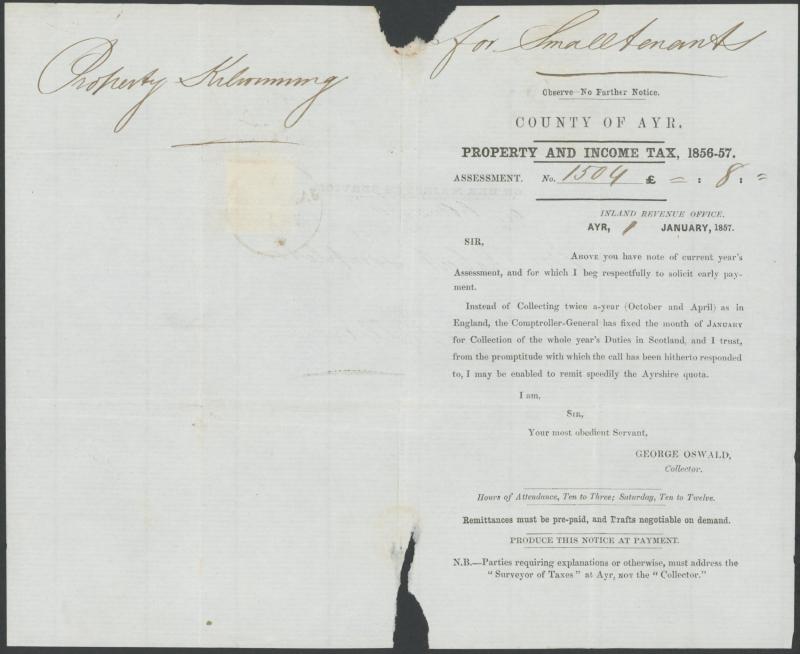 Property Kilwinning
for Small tenants
Observe—No Farther Notice.
COUNTY OF AYR.
PROPERTY AND INCOME TAX, 1856-57.
ASSESSMENT. No. 1504 £ = : 8 : =
INLAND REVENUE OFFICE.
AYR, 1 JANUARY, 1857.
SIR,
ABOVE you have note of current year's
Assessment, and for which I beg respectfully to solicit early pay-
ment.
Instead of Collecting twice a-year (October and April) as in
England, the Comptroller-General has fixed the month of JANUARY
for Collection of the whole year's Duties in Scotland, and I trust,
from the promptitude with which the call has been hitherto responded
to, I may be enabled to remit speedily the Ayrshire quota.
I am,
SIR,
Your most obedient Servant,
GEORGE OSWALD,
Collector.
Hours of Attendance, Ten to Three; Saturday, Ten to Twelve.
Remittances must be pre-paid, and Drafts negotiable on demand.
PRODUCE THIS NOTICE AT PAYMENT.
N.B.—Parties requiring explanations or otherwise, must address the
"Surveyor of Taxes" at Ayr, NOT the "Collector."